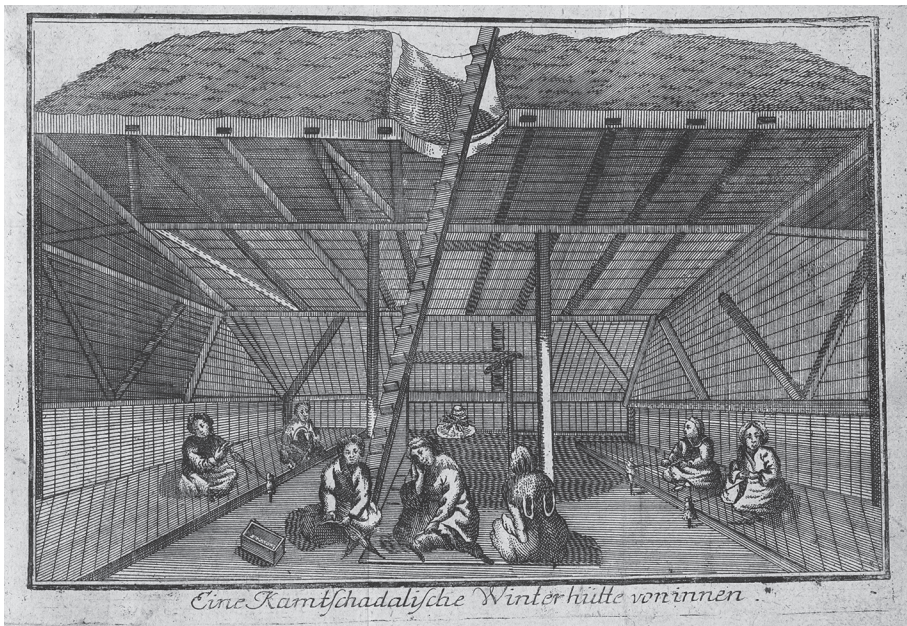 Eine Kamtschadalische Winterhütte von innen.